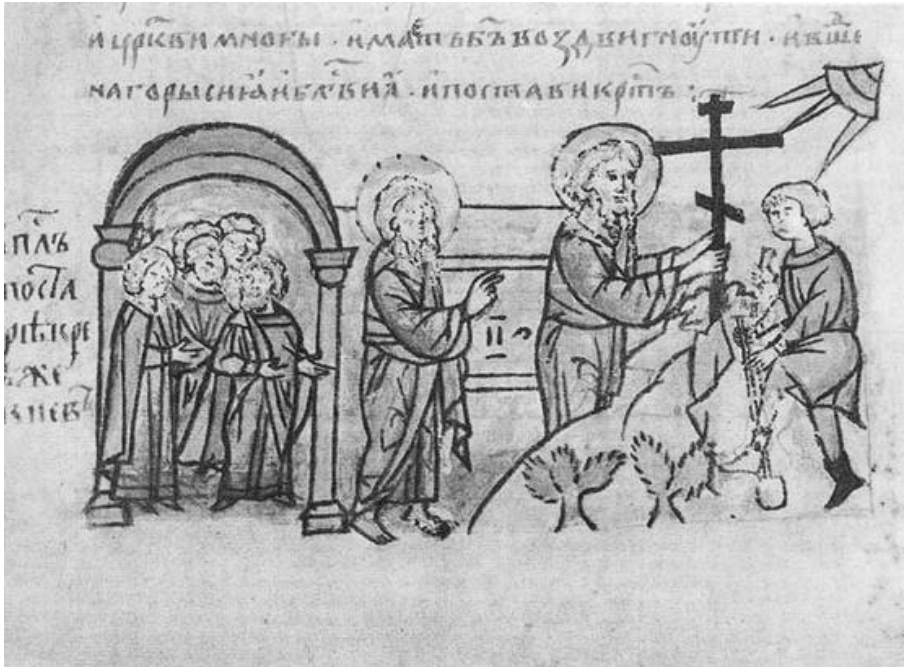 и црк҃ви многы · имат б҃ъ воздвигноути · и вшеⷣ
на горы сиꙗ и блⷭ҇ви ꙗ · и постави крⷭ҇тъ :
ап҃лъ
поста
рѣ кре
же